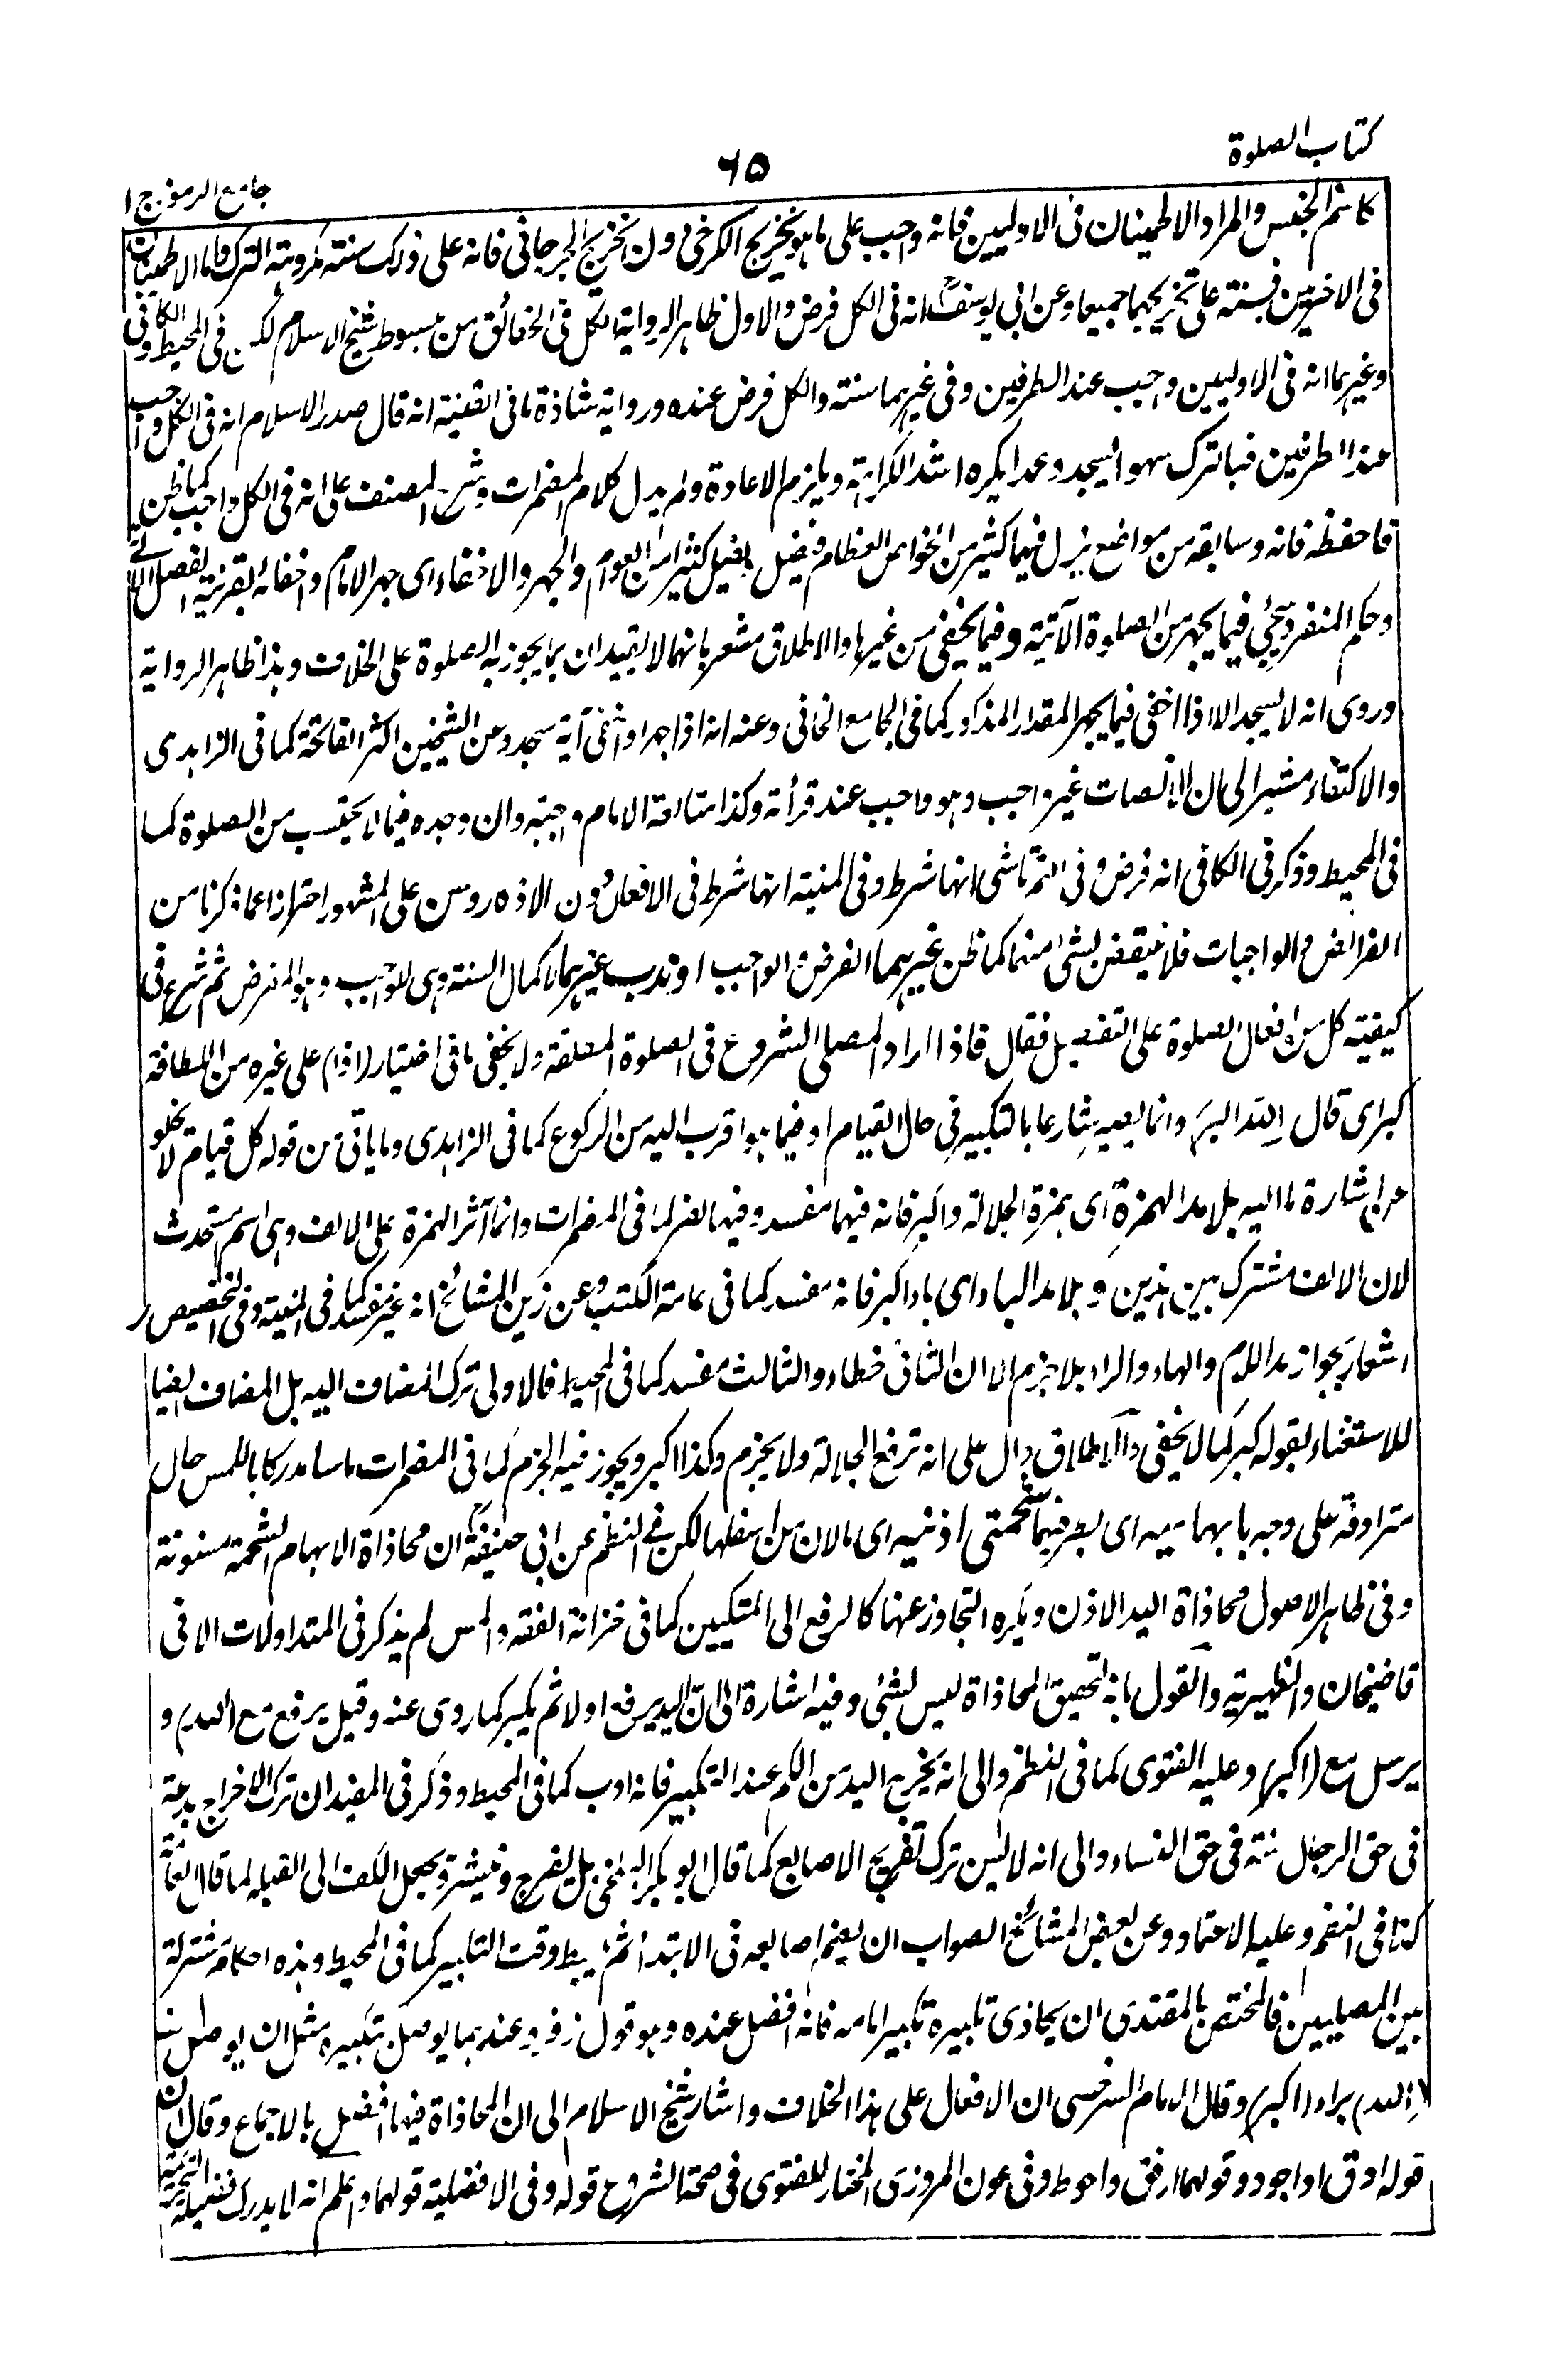 كتاب الصلوة
٦٥
جامع الرموز ج ١
كاسم الجنس والمراد الاطمينان فى الاوليين فانه واجب على ما هو تخريج الكرخى دون تخريج الجرجانى فانه على ذلك سنة مكروهة الترك واما الاطمينان
فى الاخريين فسنة على تخريجهما جميعا وعن ابى يوسف انه فى الكل فرض والاول ظاهر الرواية الكل فى الحقائق من مبسوط شيخ الاسلام لكن فى المحيط والكافى
وغيرهما انه فى الاوليين واجب عند الطرفين وفى غيرهما سنة والكل فرض عنده ورواية شاذة ما فى القنية انه قال صدر الاسلام انه فى الكل واجب
عند الطرفين فبالترك سهوا يسجد وعمدا يكره اشد الكراهة ويلزم الاعادة ولم يدل كلام المضمرات وشرح المصنف على انه فى الكل واجب كما ظن
فاحفظه فانه وسابقه من مواضع يزل فيها كثير من الخواص العظام فيضل كثيرا من العوام والجهر والاخفاء اى جهر الامام واخفائه بقرينة الفصل
وحكم المنفرد يجئ فيما يجهر من الصلوة الآتية وفيما يخفى من غيرها والاطلاق مشعر بانهما لا يقيدان بما يجوز به الصلوة على الخلاف وهذا ظاهر الرواية
وروى انه لا يسجد الا اذا اخفى فيما يجهر المقدار المذكور كما فى الجامع الخانى وعنه انه اذا جهر او اخفى آية سجد وعن الشيخين اكثر الفاتحة كما فى الزاهدى
والاكتفاء مشير الى ان الانصات غير واجب وهو واجب عند قرأته وكذا متابعة الامام واجبة وان وجده فيما لا يحتسب من الصلوة كما
فى المحيط وذكر فى الكافى انه فرض وفى التمرتاشى انها شرط وفى المنية انها شرط فى الافعال دون الاذكار وسن على المشهور احترازا عما ذكرنا من
الفرائض والواجبات فلا ينتقض بشئ منهما كما ظن غيرهما الفرض والواجب او ندب غيرهما لاكمال السنة وهى للواجب وهو للفرض ثم شرع فى
كيفية كل من افعال الصلوة على التفصيل فقال فاذا اراد المصلى الشروع فى الصلوة المطلقة ولا يخفى ما فى اختيار (اذا) على غيره من اللطافة
كبر اى قال الله اكبر وانما يصير شارعا بالتكبير فى حال القيام او فيما هو اقرب اليه من الركوع كما فى الزاهدى وما يأتى من قوله كل قيام لا يخلو
عن اشارة ما اليه بلا مد الهمزة اى همزة الجلالة واكبر فانه فيهما مفسد وفيهما كفر كما فى المضمرات وانما آثر الهمزة على الالف وهى اسم مستحدث
لان الالف مشترك بين هذين و بلا مد الباء اى باء اكبر فانه مفسد كما فى عامة الكتب وعن زين المشائخ انه غير مفسد كما فى المنية وفى التخصيص
اشعار بجواز مد اللام والهاء والراء بلا جزم الا ان الثانى خطاء والثالث مفسد كما فى المحيط فالاولى ترك المضاف اليه بل المضاف ايضا
للاستغناء بقوله كبر كما لا يخفى والاطلاق دال على انه ترفع الجلالة ولا يجزم وكذا اكبر ويجوز فيه الجزم كما فى المضمرات ماسا مدركا باللمس حال
مترادفة على وجه بابهاميه اى بطرفيهما شحمتى اذنيه اى ما لان من اسفلها لكن فى النظم عن ابى حنيفة ان محاذاة الابهام الشحمة مسنونة
وفى ظاهر الاصول محاذاة اليد الاذن ويكره التجاوز عنها كالرفع الى المنكبين كما فى خزانة الفقه والمس لم يذكر فى المتداولات الا فى
قاضيخان والظهيرية والقول بانه لتحقيق المحاذاة ليس بشئ وفيه اشارة الى ان اليد يرفع اولا ثم يكبر كما روى عنه وقيل يرفع مع (الله) و
يرسل مع (اكبر) وعليه الفتوى كما فى النظم والى انه يخرج اليد من الكم عند التكبير فانه ادب كما فى المحيط وذكر فى المفيد ان ترك الاخراج بدعة
فى حق الرجال سنة فى حق النساء والى انه لا يسن ترك تفريج الاصابع كما قال ابو بكر البلخى بل يفرج وينشر ويجعل الكف الى القبلة كما قال العامة
كذا فى النظم وعليه الاعتماد وعن بعض المشائخ الصواب ان يضم اصابعه فى الابتدأ ثم يبسط وقت التكبير كما فى المحيط وهذه احكام مشتركة
بين المصليين فالمختص بالمقتدى ان يحاذى تكبيره تكبير امامه فانه افضل عنده وهو قول زفر وعندهما يوصل تكبيره مثل ان يوصل
(الله) براء (اكبر) وقال الامام السرخسى ان الافعال على هذا الخلاف واشار شيخ الاسلام الى ان المحاذاة فيها افضل بالاجماع وقال ان
قوله ادق واجود وقولهما ارفق واحوط وفى عون المروزى المختار للفتوى فى صحة الشروع قوله وفى الافضلية قولهما واعلم انه لا يدرك فضيلة التحريمة